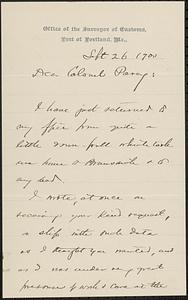 Office of the Surveyor of Customs,
Port of Portland, Me.,
Sept 26 1900
Dear Colonel
I have just returned to
my office from quite a
little down fall which took
me home to Brunswick & to
my bed.
I wrote, at once on
receiving your kind request,
a ship with such data
as I thought you wanted, and
as I was under very great
pressure of work & care at the